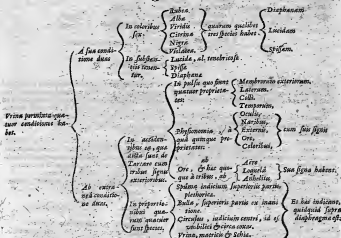 Urina permixta qua-
tuor conditiones ha-
bet.
A sua condi-
tione duas
In coloribus
sex.
Rubea.
Alba
Viridis
Citrina
Nigra
Violacea.
quarum quælibet
tres species habet.
Diaphanam
Lucidam
Spissam.
In substan-
tiis
tur,
Lucida, al. tenebricosa.
Spissa
Diaphana
Ab extra-
nea conditio-
ne duas,
In acciden-
tibus ea, quæ
dicta sunt de
Tartaro cum
tribus signis
exterioribus.
In pulsu quo sunt
quatuor proprieta-
tes:
Membrorum exteriorum.
Laterum.
Colli.
Temporum,
Physionomia, à
quâ quinque pro-
prietates:
Oculis,
Naribus,
Externis,
Ore,
Coloribus,
cum suis signis
ab
Ore, & hac quo-
que à tribus, ab
Aëre
Loquelâ
Anhelitu
Sua signa habent.
In proportio-
nibus qua-
rum quatuor
sunt species,
Spuma indicium superioris partis
plethorica.
Bulla, superioris partis ex inani-
tione.
Circulus, indicium centri, id est
umbilici & circa eum.
Urina, matricis & Schiæ.
Ex his indicant,
quidquid supra
diaphragma est.